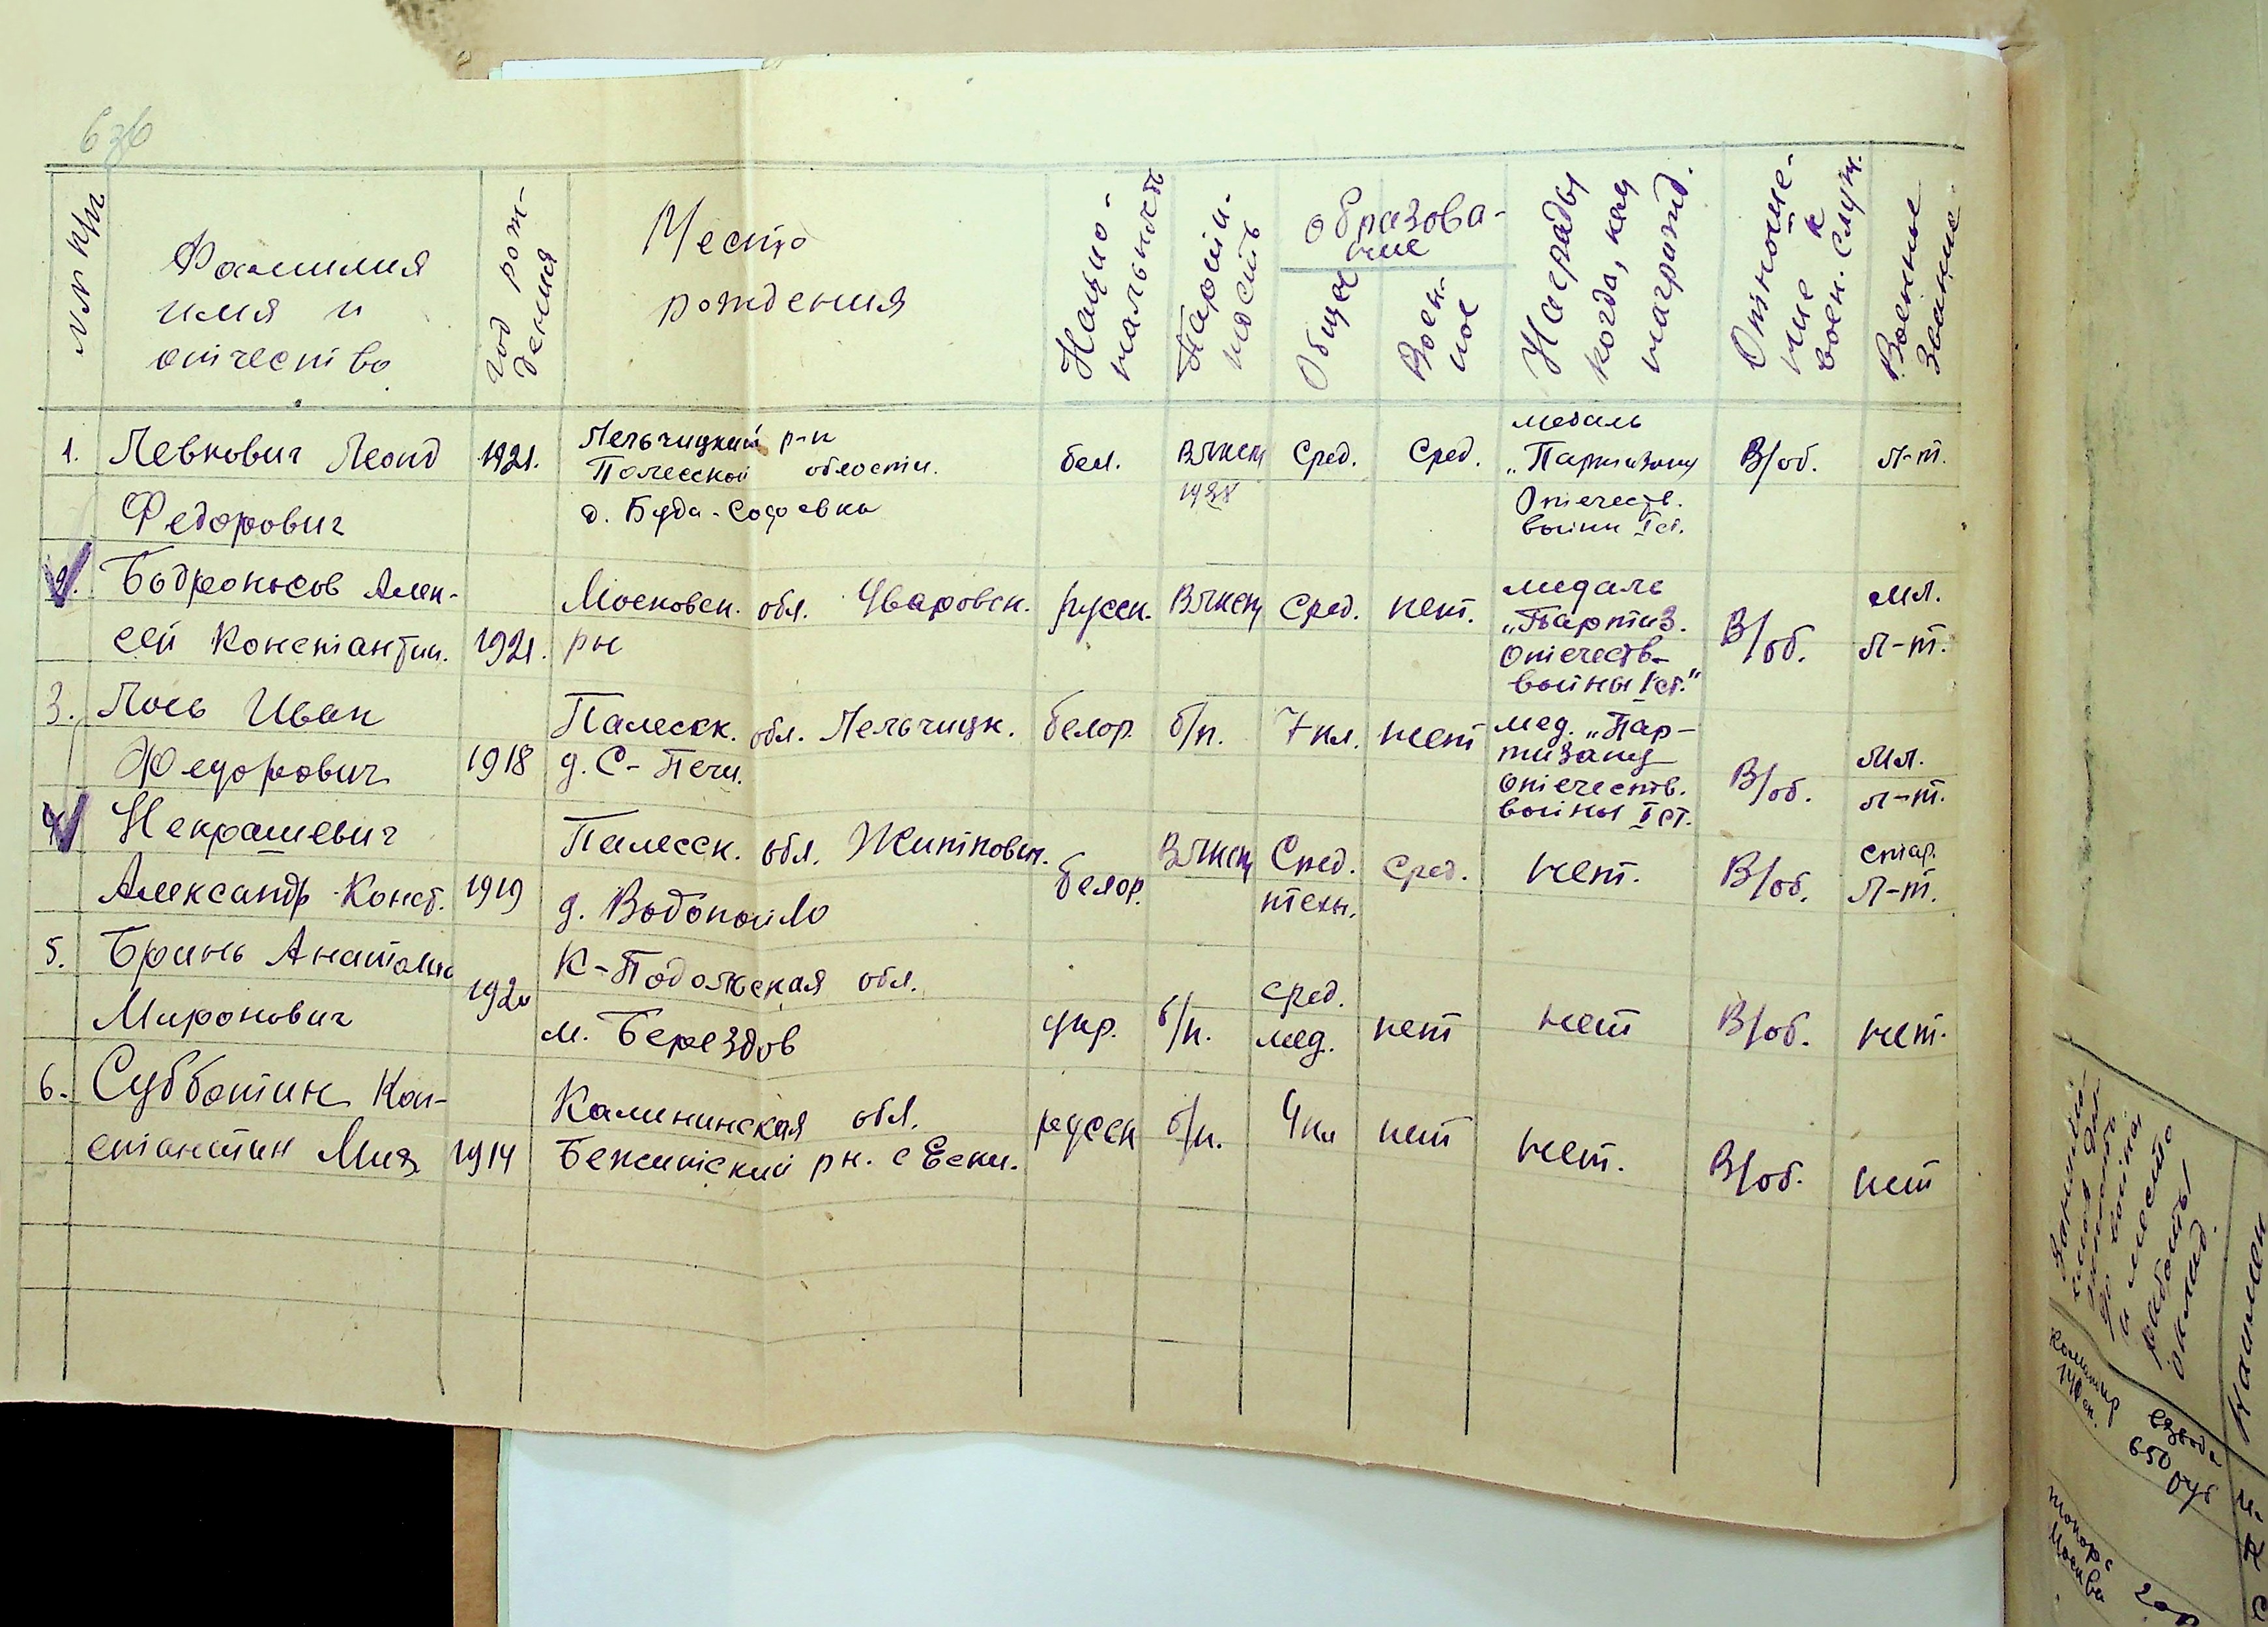 636
№№ п/п
Фамилия
имя и
отчество
Год рож-
дения
Место
рождения
Нацио-
нальность
Партий-
ность
Образова-
ние
Общее
Воен-
ное
Награды
когда, кем
награжд.
Отноше-
ние к
воен. служ.
Военные
звание
1. Левкович Леонид 1921. Лельчицкий р-н бел. ВЛКСМ Сред. Сред. медаль В/об. л-т.
Полесской области. 1938 „Партизану
Федорович д. Буда-Софиевка Отечеств.
войны I ст.
2. Бодроносов Алек- Московск. обл. Уваровск. русск. ВЛКСМ Сред. нет. медаль В/об. мл.
сей Константин. 1921. рн „Партиз. л-т.
Отечеств.
войны I ст."
3. Лось Иван Палесск. обл. Лельчицк. белор. б/п. 7 кл. нет мед. „Пар- В/об. мл.
Федорович 1918 д. С-Печи. тизану л-т.
Отечеств.
войны I ст.
4. Некрашевич Палесск. обл. Житкович. белор. ВЛКСМ Сред. сред. нет. В/об. стар.
Александр Конст. 1919 д. Водопойло техн. л-т.
5. Бринь Анатолий К-Подольская обл. укр. б/п. сред. нет нет В/об. нет.
Миронович 1920 м. Берездов мед.
6. Субботин Кон- Калининская обл. русск б/п. 4 кл нет нет. В/об. нет
стантин Мих. 1914 Бежитский рн.
до войны
и место
работы
оклад.
Наимен
Командир взвода
650 руб
Москва